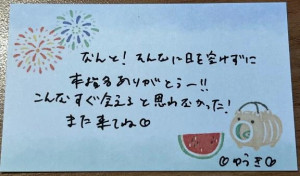 なんと！そんなに日を空けずに
本指名ありがとうー!!
こんなすぐ会えると思わなかった！
また来てね♡
♡ゆうき♡